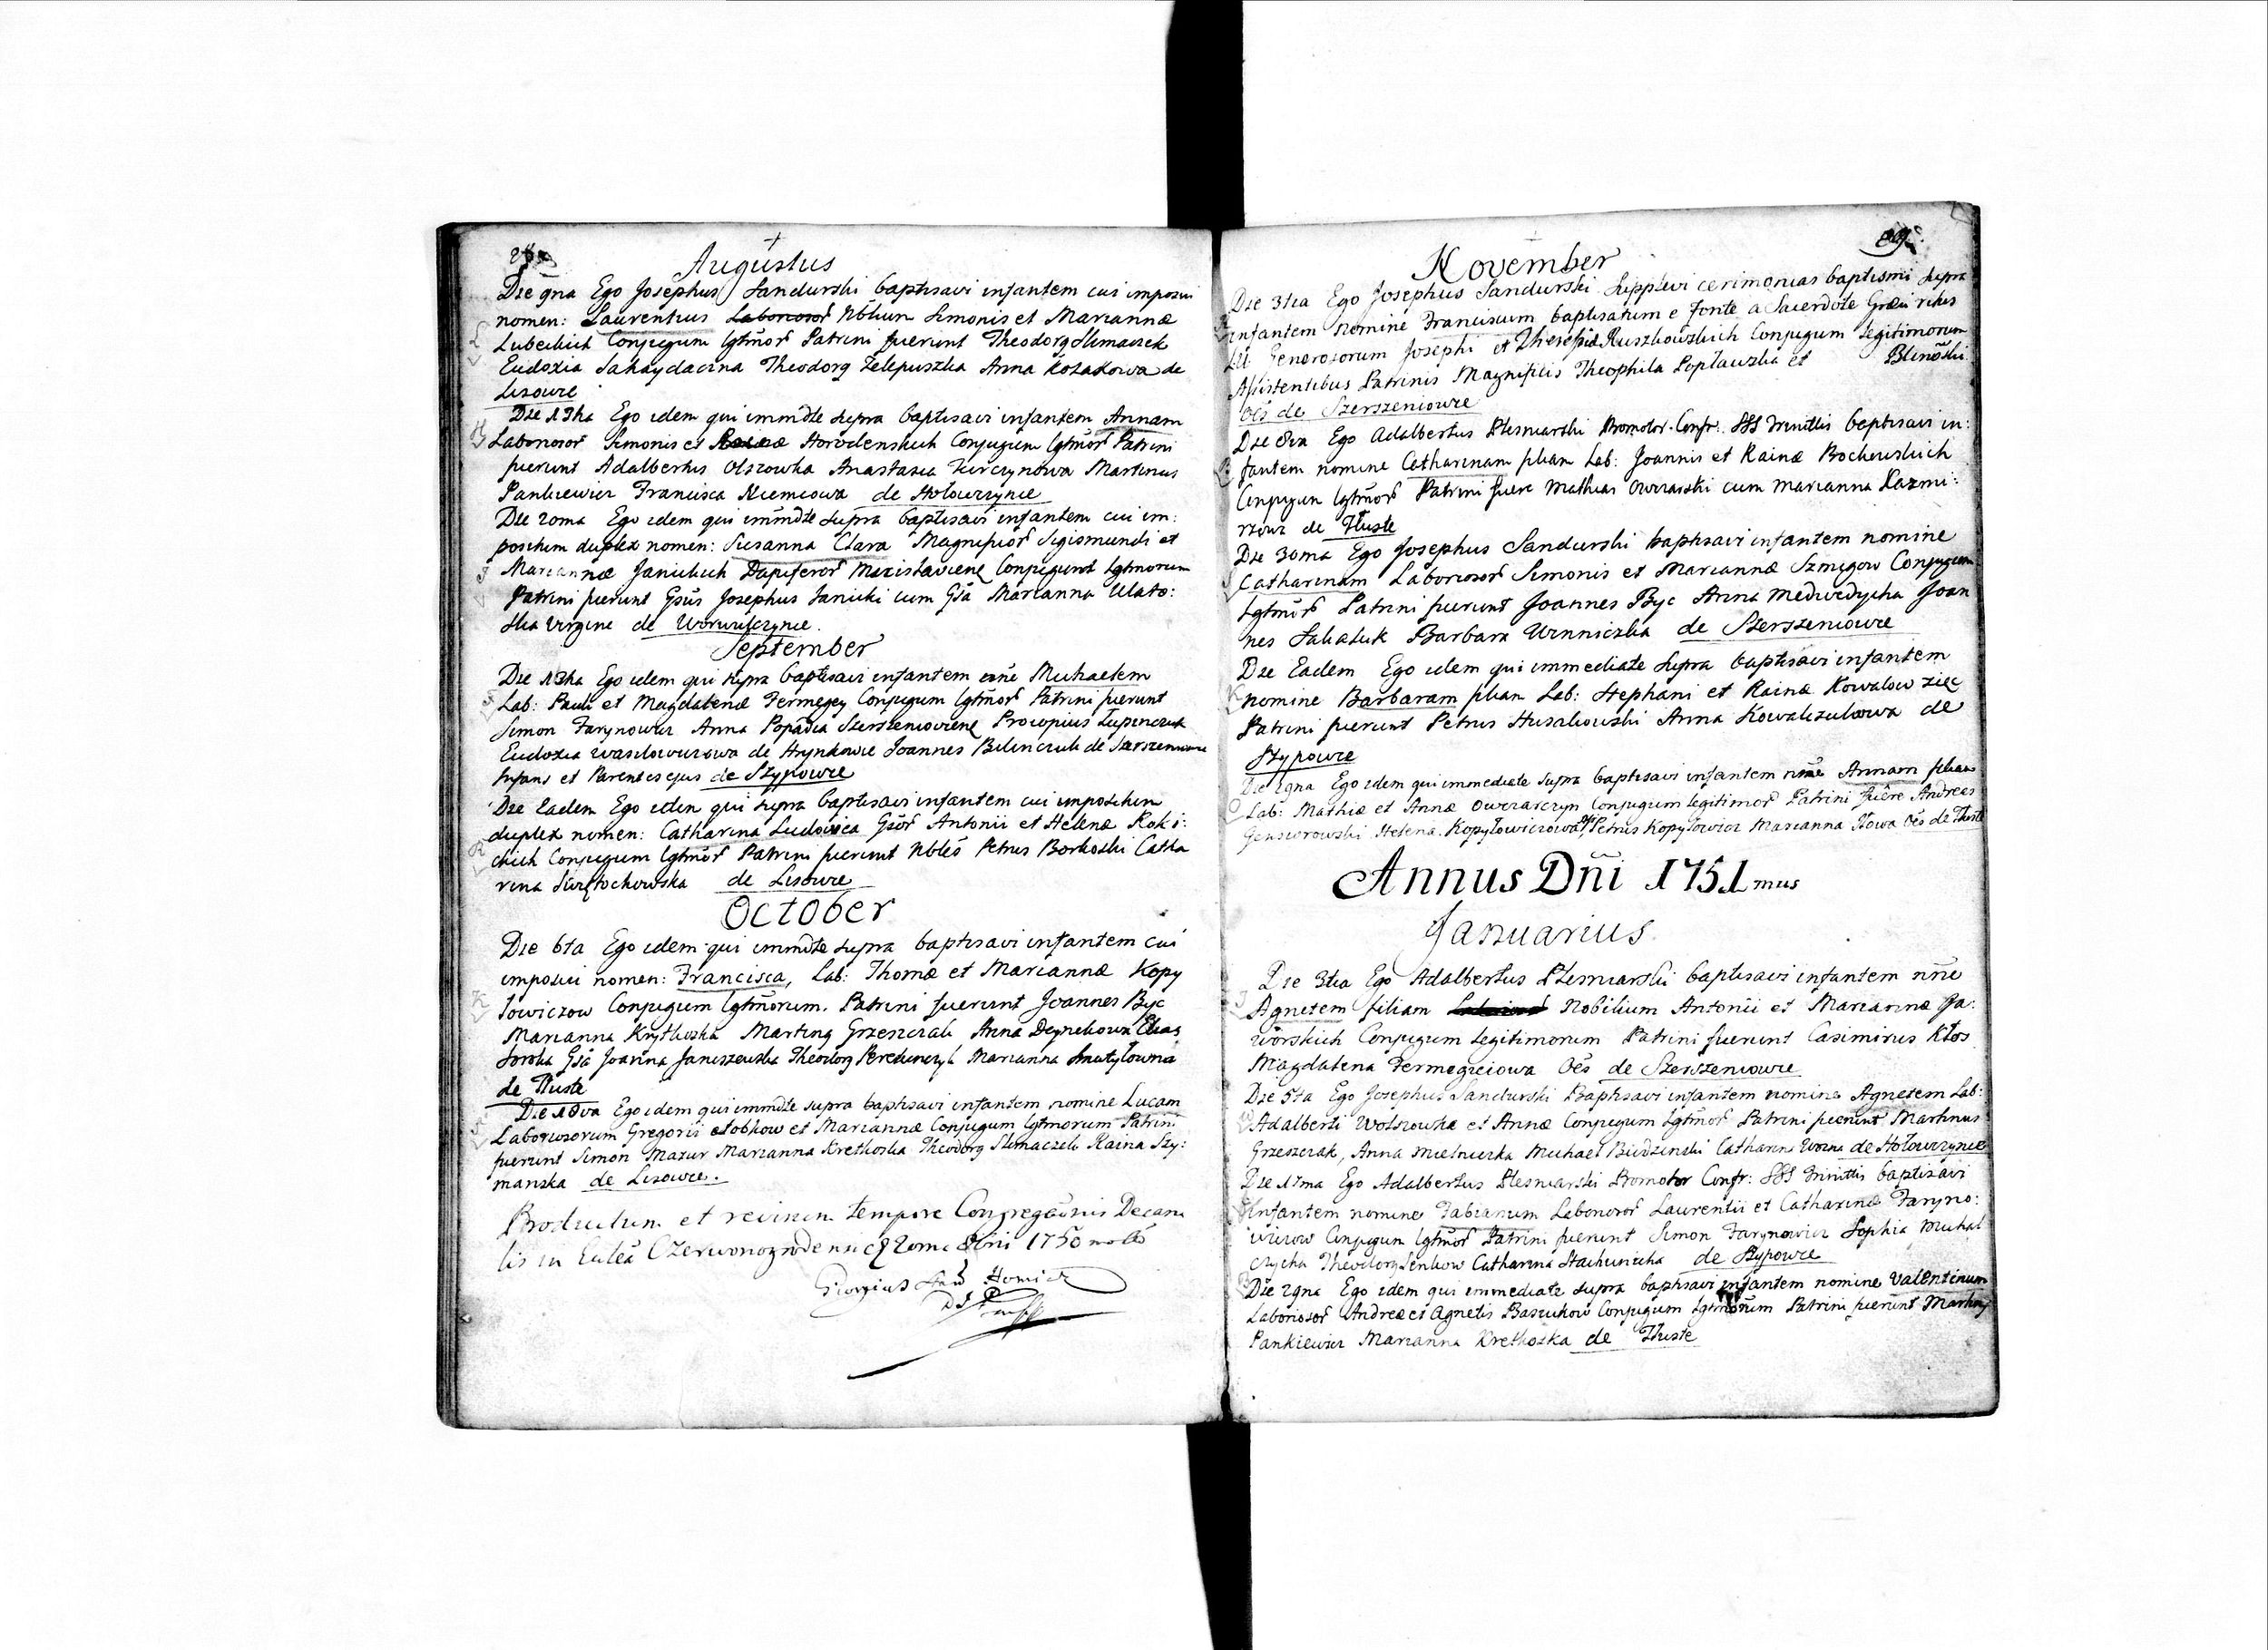 Augustus
Die 9na Ego Josephus Sandurski baptisavi infantem cui imposui
nomen: Laurentius Laboriosor Nblium Simonis et Mariannæ
Lubeckich Conjugum lgtmor Patrini fuerunt Theodorg Slimaczek
Eudoxia Sahaydaczna Theodorg Zelepuszka Anna Kozakowa de
Lisowce
Die 13tia Ego idem qui immdte supra baptisavi infantem Annam
Laboriosor Simonis et Rainæ Horodenskich Conjugum lgtmor Patrini
fuerunt Adalbertus Olszowka Anastasia Turczynowa Martinus
Pankiewicz Francisca Niemcowa de Hołowczynce
Die 20ma Ego idem qui immdte supra baptisavi infantem cui im:
positum duplex nomen: Susanna Clara Magnificor Sigismundi et
Mariannæ Janickich Dapiferor Mscislaviene Conjugum lgtmorum
Patrini fuerunt Gsus Josephus Janicki cum Gsa Marianna Ulato:
ska Virgine de Worwulczynce.
September
Die 13tia Ego idem qui supra baptisavi infantem nne Michaelem
Lab: Pauli et Magdalenæ Fermegey Conjugum lgtmor Patrini fuerunt
Simon Farynowicz Anna Popadia Szerszenioviene Procopius Łupinczuk
Eudoxia Wasilowiczowa de Hrynkowce Joannes Bilinczuk de Szerszeniowce
Infans et Parentes ejus de Szypowce
Die Eadem Ego idem qui supra baptisavi infantem cui impositum
duplex nomen: Catharina Ludovica Gsor Antonii et Helenæ Roki:
ckich Conjugum lgtmor Patrini fuerunt Nbles Petrus Borkoski Catha
rina Swiętochowska de Lisowce
October
Die 6ta Ego idem qui immdte supra baptisavi infantem cui
imposui nomen: Francisca, Lab: Thomæ et Mariannæ Kopy
łowiczow Conjugum lgtmorum. Patrini fuerunt Joannes Byc
Marianna Krytkoska Marting Grzeszczak Anna Deynekowa Elias
Soroka Gsa Joanna Janiszewska Theodorg Peredunczyk Marianna Smatyłowna
de Tłuste
Die 18va Ego idem qui immdte supra baptisavi infantem nomine Lucam
Laboriosorum Gregorii Słobkow et Mariannæ Conjugum lgtmorum Patrini
fuerunt Simon Mazur Marianna Kretkoska Theodorg Slimaczek Raina Szy:
manska de Lisowce.
Productum et revisum tempore Congregaonis Decana
lis in Ecclea Czerwonogrodensi 1750
November
Die 3tia Ego Josephus Sandurski Supplevi cerimonias baptismi supra
infantem nomine Franciscum baptisatum e fonte a Sacerdote Græci ritus
fil: Generosorum Josephi et Theresiæ Ruszkowskich Conjugum legitimorum
Assistentibus Patrinis Magnificis Theophila Popławska et Blinoski
Oes de Szerszeniowce
Die 8va Ego Adalbertus Plesniarski Promotor Confr: SSS Trinittis baptisavi in:
fantem nomine Catharinam filiam Lab: Joannis et Rainæ Bochenskich
Conjugum lgtmor Patrini fuere Mathias Owczarski cum Marianna Kazmi:
rzowa de Tłuste
Die 30ma Ego Josephus Sandurski baptisavi infantem nomine
Catharinam Laboriosor Simonis et Mariannæ Szmigow Conjugum
lgtmor Patrini fuerunt Joannes Byc Anna Medwedycha Joan
nes Sahaluk Barbara Winniczka de Szerszeniowce
Die Eadem Ego idem qui immediate supra baptisavi infantem
nomine Barbaram filiam Lab: Stephani et Rainæ Kowalow zięc
Patrini fuerunt Petrus Husakowski Anna Kowalczukowa de
Szypowce
Die 29na Ego idem qui immediate supra baptisavi infantem nme Annam filiam
Lab: Mathiæ et Annæ Owczarczyn Conjugum legitimor Patrini fuere Andreas
Gensiorowski Helena Kopyłowiczowa Petrus Kopyłowicz Marianna Oes de Tłuste
Annus Dni 1751mus
Januarius
Die 3tia Ego Adalbertus Plesniarski baptisavi infantem nne
Agnetem filiam Nobilium Antonii et Mariannæ Ja:
worskich Conjugum Legitimorum Patrini fuerunt Casimirus Kłos
Magdalena Fermegieiowa Oes de Szerszeniowce
Die 5ta Ego Josephus Sandurski Baptisavi infantem nomine Agnetem Lab:
Adalberti Wolszowka et Annæ Conjugum lgtmor Patrini fuerunt Martinus
Grzeszczak, Anna Mielniczka Michael Budzinski Catharina Wozna de Hołowczynce
Die 17ma Ego Adalbertus Plesniarski Promotor Confr: SSS Trinittis baptisavi
Infantem nomine Fabianum Laboriosor Laurentii et Catharinæ Faryno:
wiczow Conjugum lgtmor Patrini fuerunt Simon Farynowicz Sophia Michal
czycha Theodorg Senkow Catharina Stachiwicka de Szypowce
Die 29na Ego idem qui immediate supra baptisavi infantem nomine Valentinum
Laboriosor Andreæ et Agnetis Basiukow Conjugum lgtmorum Patrini fuerunt Marting
Pankiewicz Marianna Kretkoska de Tłuste